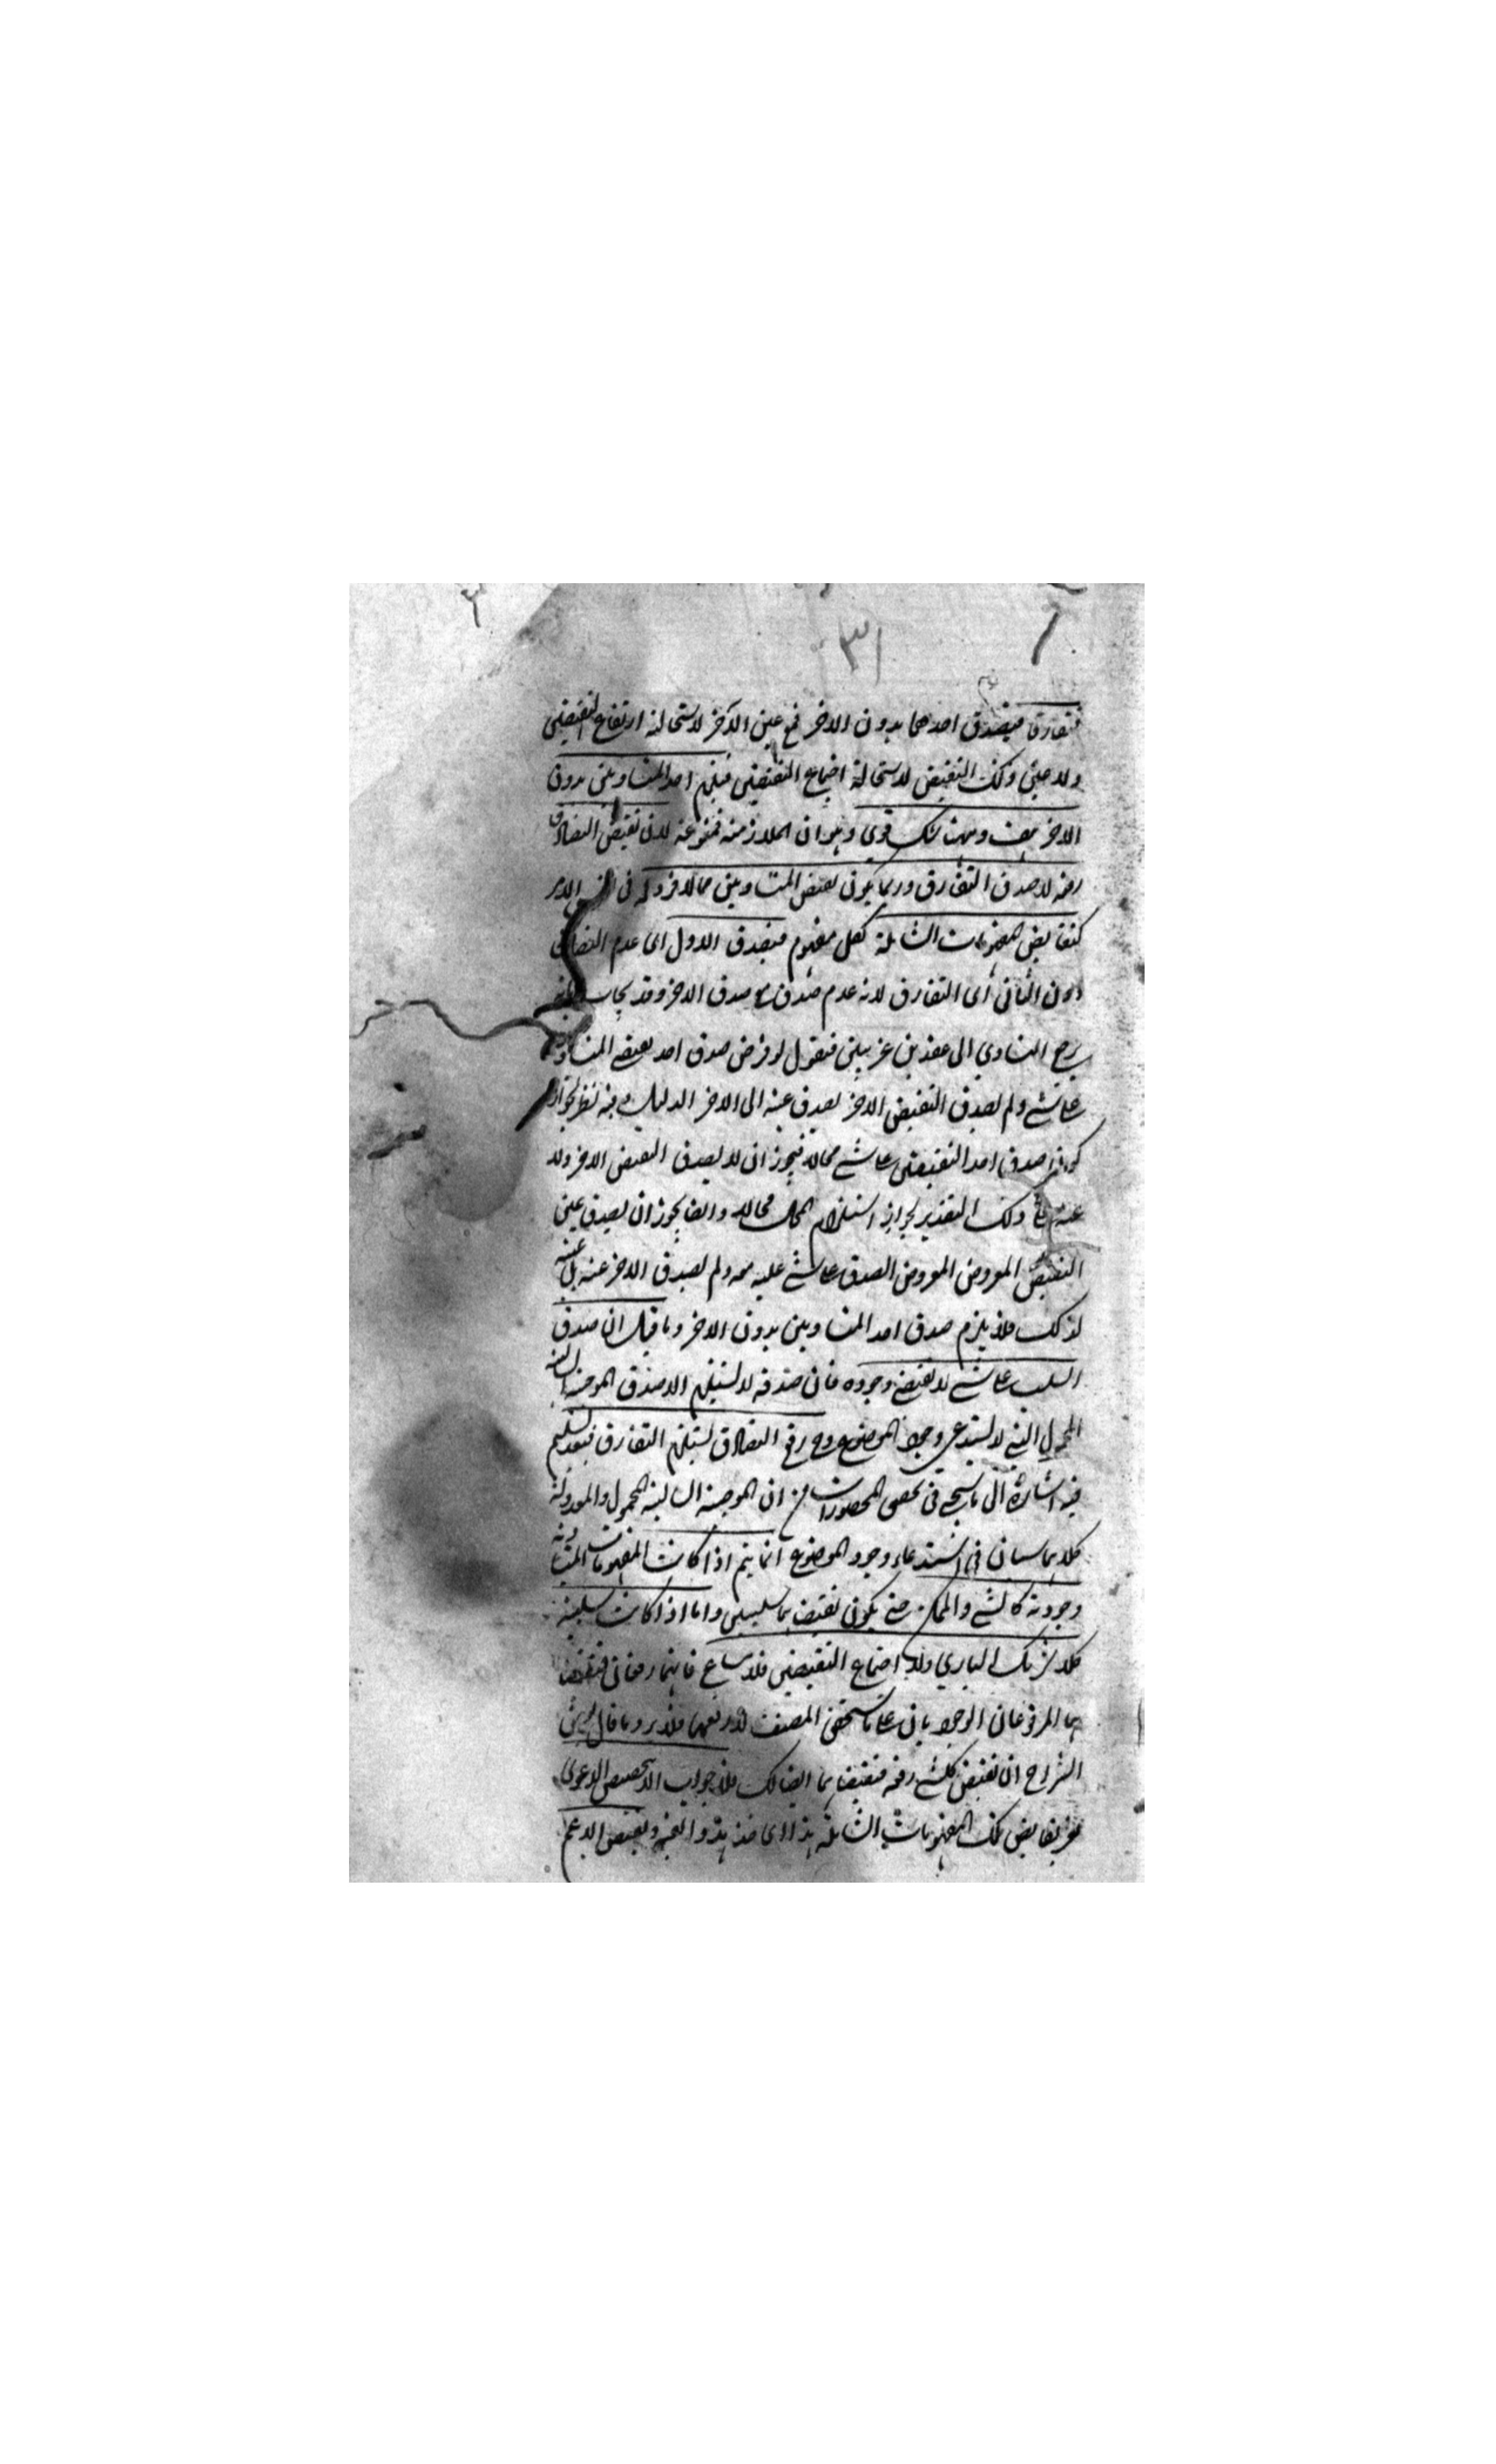 ٣١
فتفارقا فيصدق احدهما بدون الاخر فمع عين الآخر لاستحالة ارتفاع النقيضين
ولا عين وكك النقيض لاستحالة اجتماع النقيضين فيلزم صدق احد المتساويين بدون
الاخر هف وههنا شك قوي وهو ان الملازمة ممنوعة لان نقيض التصادق
رفعه لا صدق التفارق وربما يكون نقيض المتساويين مما لا فرد له في نفس الامر
كنقايض المفهومات الشاملة ككل مفهوم فيصدق الاول اى عدم التصادق
دون الثاني أى التفارق لانه عدم صدق مع صدق الاخر وقد يجاب بانه
يرجع التساوي الى عقدين غر بيلتى فنقول لو فرض صدق احد نقيضى المتساويين
على شئ ولم يصدق النقيض الاخر يصدق عينه الى الاخر الدليل وفيه نظر لجواز
كون صدق احد النقيضين على شئ محالا فيجوز ان لا يصدق النقيض الاخر ولا
عينه على ذلك التقدير لجواز استلزام المحال محالا وايضا يجوز ان يصدق عين
النقيض المفروض المفروض الصدق على شئ عليه معه ولم يصدق الاخر عينه بل عينه
لذلك فلا يلزم صدق احد المتساويين بدون الاخر وما قيل ان صدق
السلب على شئ لا يقتضى وجوده فان صدقه لا يستلزم الا صدق الموجبة السالبة
المحمول التى لا يستدعى وجود الموضوع وح رفع التصادق يستلزم التفارق فبعد تسليم
فيه اشارة الى ما سيجئ في تحقيق المحصورات من ان الموجبة السالبة المحمول والمعدولة
كلاهما سيان في استدعاء وجود الموضوع انما يتم اذا كانت المفهومات المتساوية
وجودية كالشئ والممكن حتى يكون نقيضاهما سلبيين واما اذا كانت سلبية
كلا شريك الباري ولا اجتماع النقيضين فلا مساغ فانهما رفعان فنقيضاهما
هما المرفوعان الوجوديان على ما يستحق المصنف لا رفعهما فلا يرد ما قال بعض
الشراح ان نقيض كل شئ رفعه فنقيضاهما ايضا كك فلا جواب الا تخصيص الدعوى
بغير نقايض تلك المفهومات الشاملة هذا اى خذ هذا والتجنب ونقيض الاعم